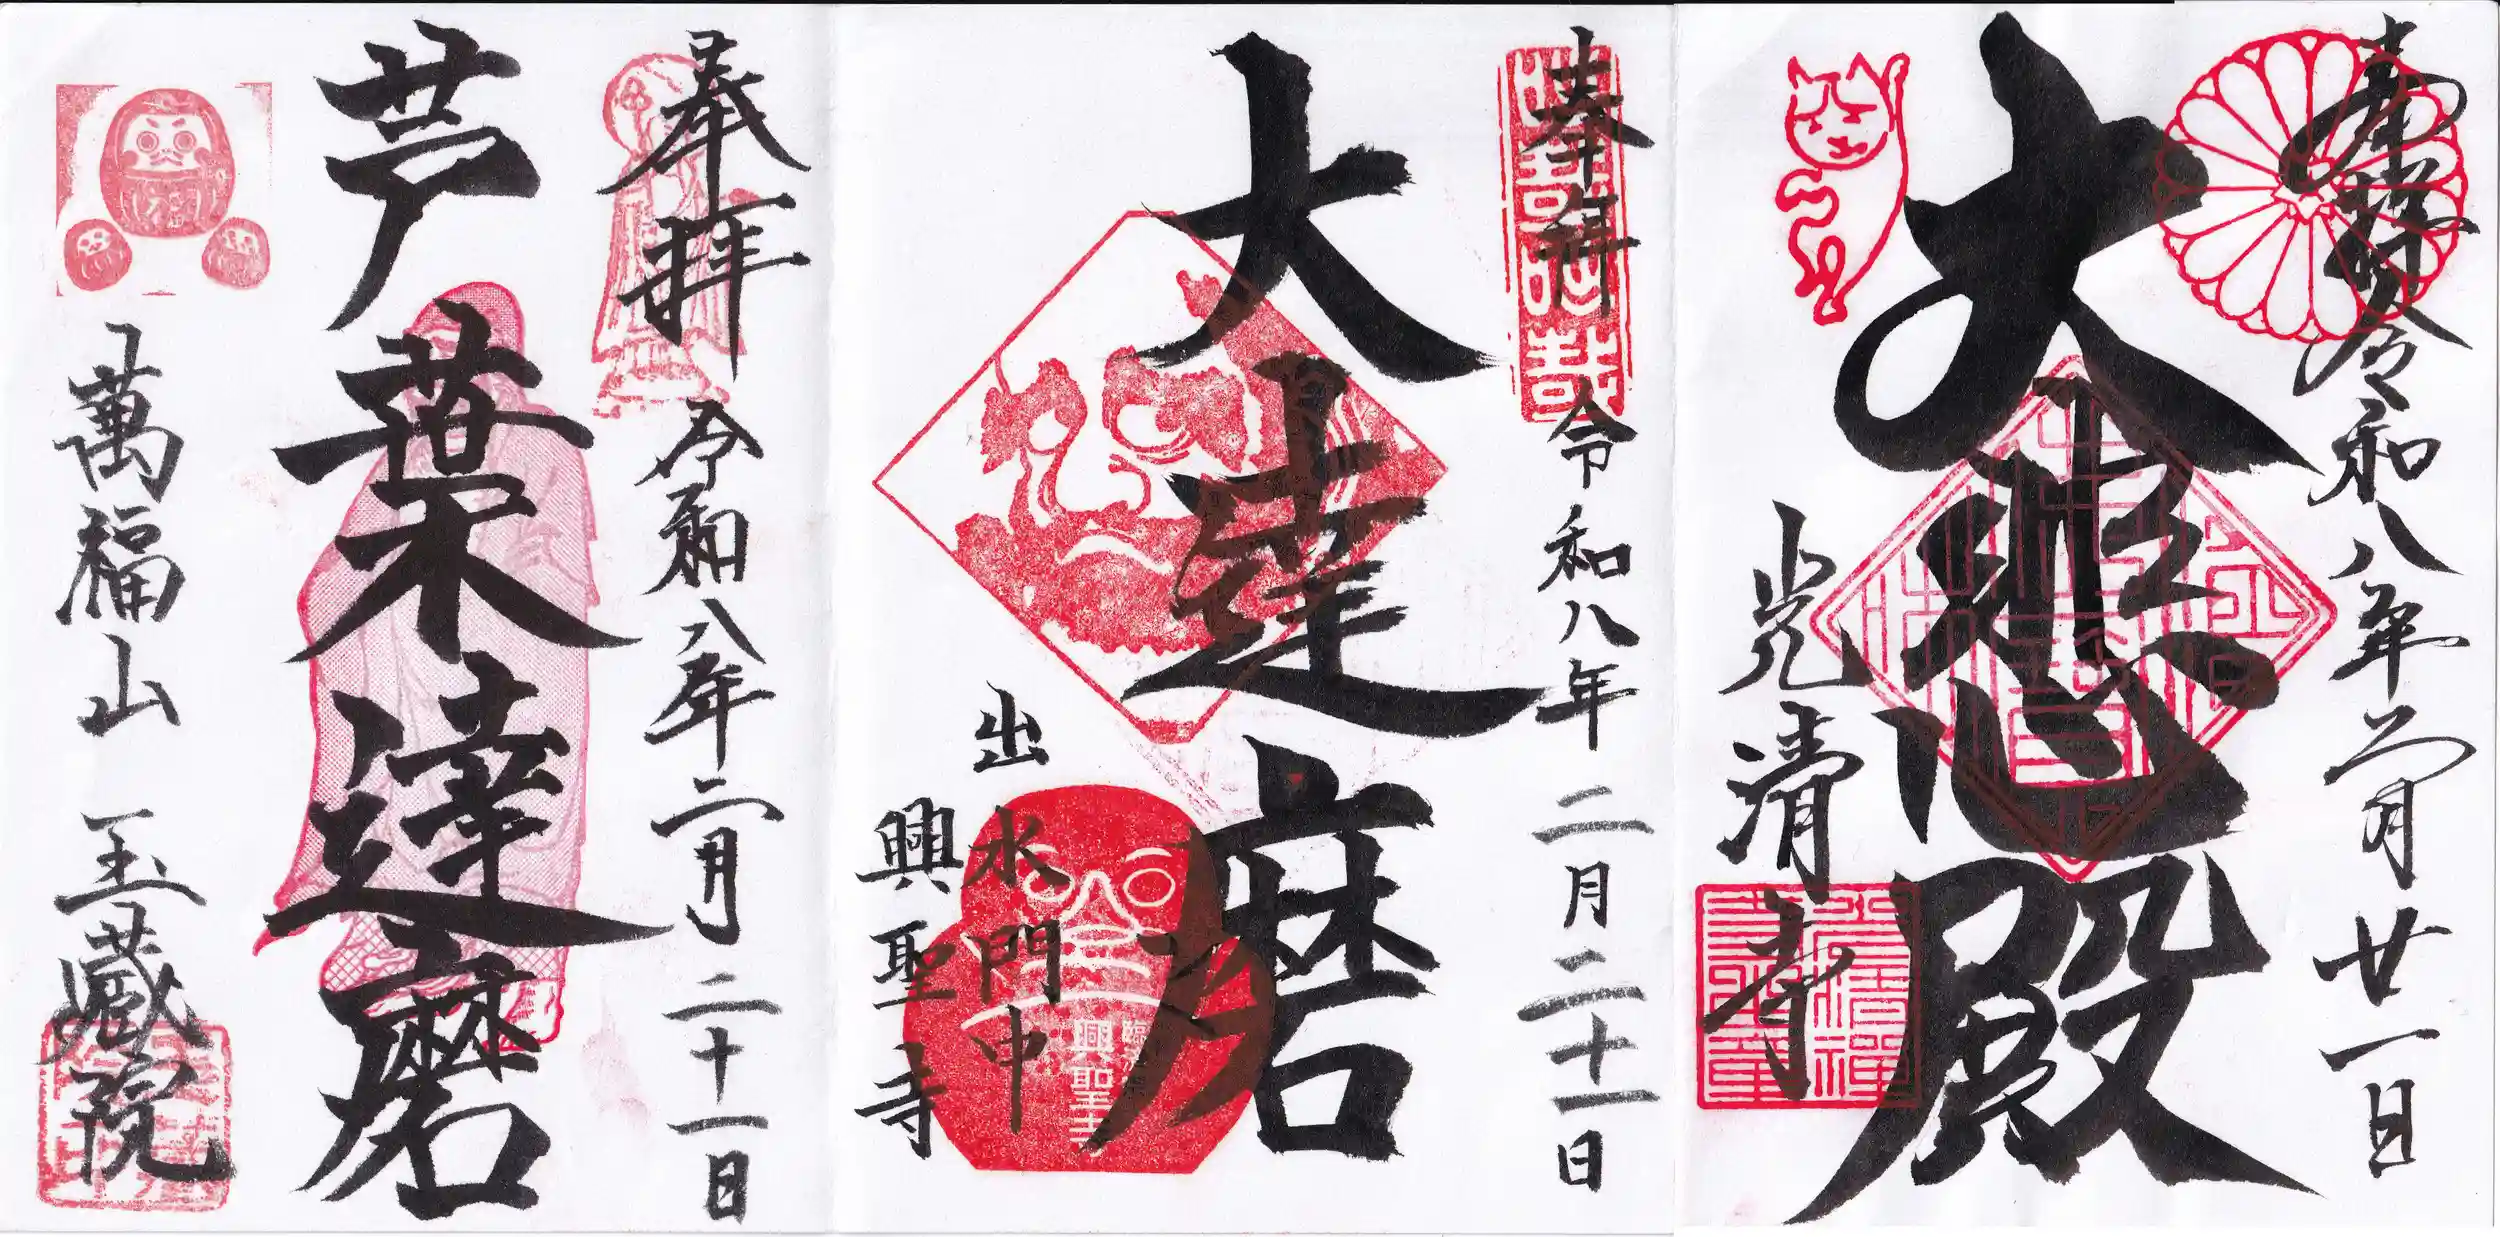 奉拝 令和八年二月廿一日
大悲殿
光清寺
奉拝 令和八年二月二十一日
大達磨
出水門中
興聖寺
興聖寺
奉拝 令和八年二月二十一日
芦葉達磨
萬福山 玉蔵院